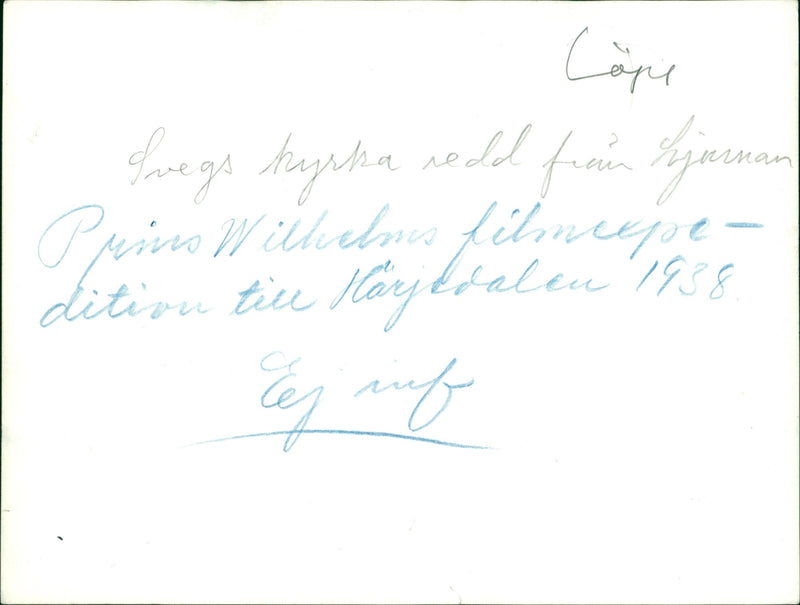 Svegs kyrka sedd från Ljusnan
Prins Wilhelms filmexpe-
dition till Härjedalen 1938.
Ej inf